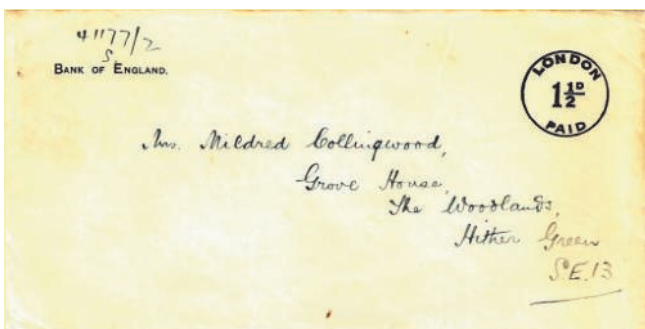 41177/2
S
BANK OF ENGLAND.
LONDON
1½D
PAID
Mrs. Mildred Collingwood,
Grove House,
The Woodlands,
Hither Green
S.E.13